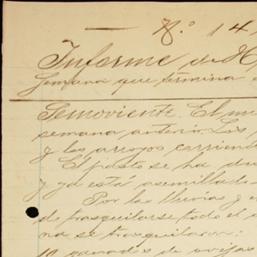 N.o 14
Informe de H
Semana que termina
Semoviente. El m
semana anterior. Los
y los arroyos corriend
El pasto se ha
y ya está asemillad
Por las lluvias y
de trasquilarse todo el
na se trasquilaron:
ganados de ovejas